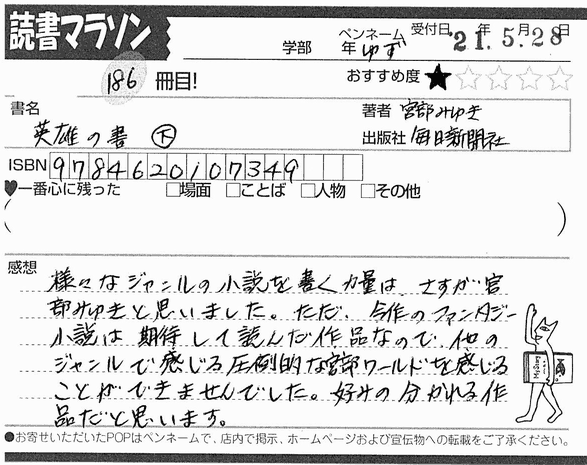 読書マラソン
学部 年 ペンネーム ゆず 受付日 '21年5月28日
186 冊目!
おすすめ度★☆☆☆☆
書名 英雄の書 下
著者 宮部みゆき
出版社 毎日新聞社
ISBN 9784620107349
♥一番心に残った □場面 □ことば □人物 □その他
( )
感想
様々なジャンルの小説を書く力量は、さすが宮
部みゆきと思いました。ただ、今作のファンタジー
小説は期待して読んだ作品なので、他の
ジャンルで感じる圧倒的な宮部ワールドを感じる
ことができませんでした。好みの分かれる作
品だと思います。
●お寄せいただいたPOPはペンネームで、店内で掲示、ホームページおよび宣伝物への転載をご了承ください。